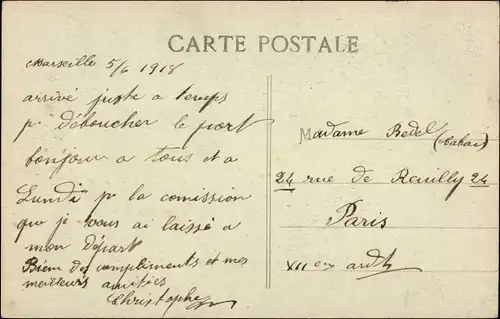 CARTE POSTALE
Marseille 5/6 1918
arrivé juste a temps
p. déboucher le port
bonjour a tous et a
Lundi p la comission
que je vous ai laissé a
mon départ
Bien des compliments et mes
meilleurs amitiés
Christophe
Madame Bedel
(tabac)
24 rue de Reuilly 24
Paris
XII em ardt